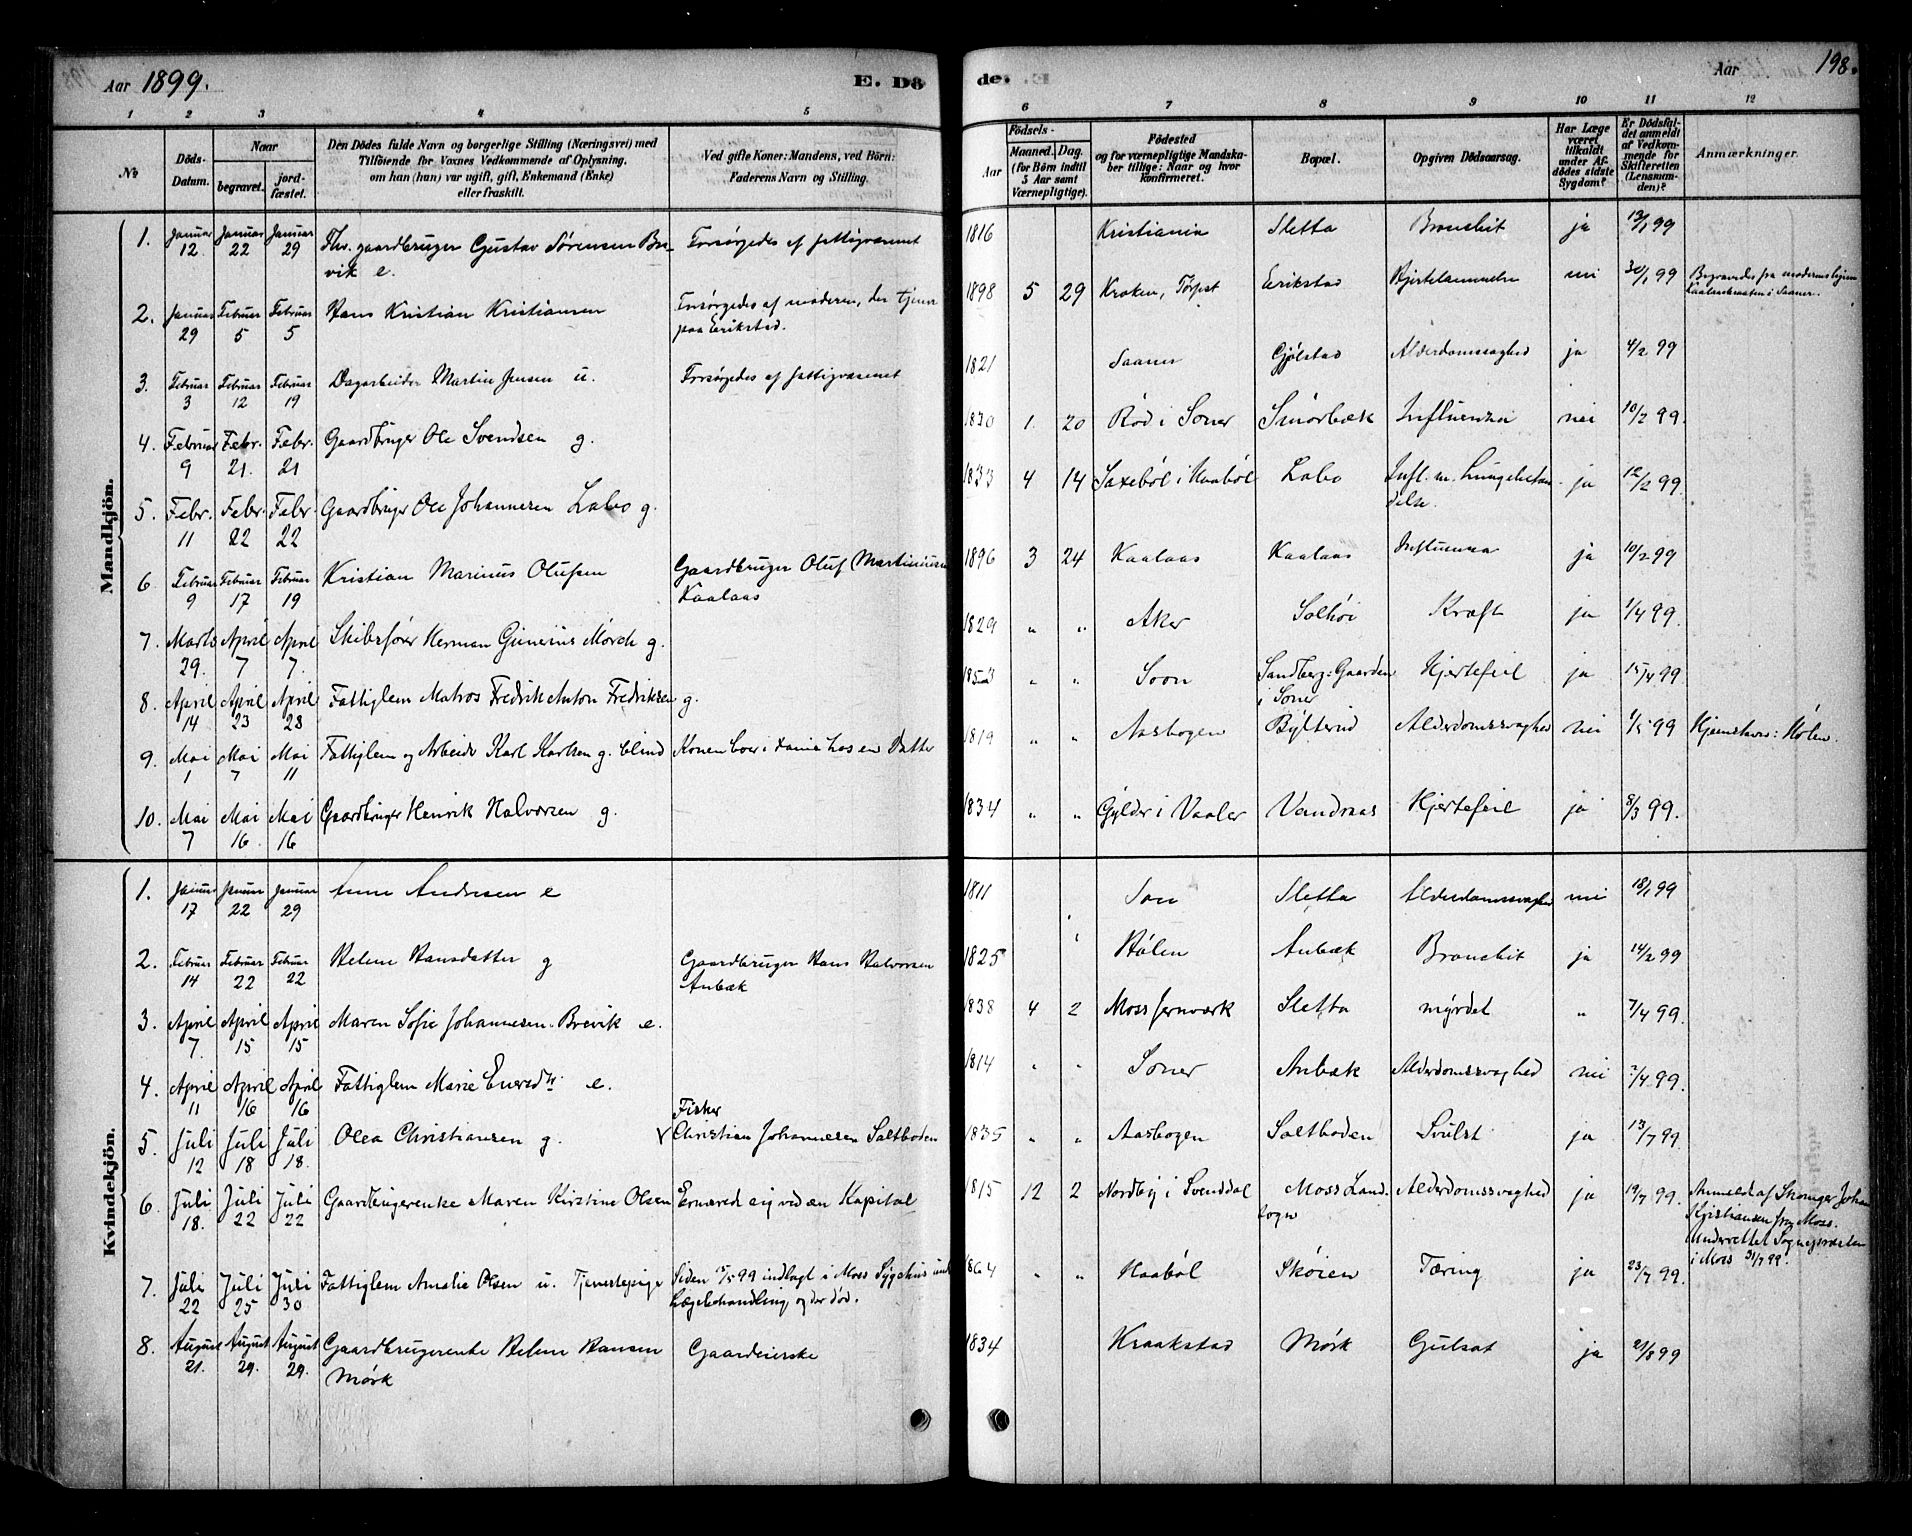 Aar 1899.
E. Dö
de.
Aar
198.
1 2 3 4 5 6 7 8 9 10 11 12
No
Döds-Datum.
Naar
begravet.
jordfæstet.
Den Dödes fulde Navn og borgerlige Stilling (Næringsvei) med
Tilföiende for Voxnes Vedkommende af Oplysning,
om han (hun) var ugift, gift, Enkemand (Enke)
eller fraskilt.
Ved gifte Koner: Mandens, ved Börn:
Faderens Navn og Stilling.
Födsels-
Aar
Maaned. Dag.
(for Börn indtil
5 Aar samt
Værnepligtige).
Födested
og for værnepligtige Mandska-
ber tillige: Naar og hvor
konfirmeret.
Bopæl.
Opgiven Dödsaarsag.
Har Læge
været
tilkaldt
under Af-
dödes sidste
Sygdom?
Er Dödsfal-
det anmeldt
af Vedkom-
mende for
Skifteretten
(Lensman-
den)?
Anmærkninger.
Mandkjön.
1. Januar 12 Januar 22 Januar 29 Fhv. gaardbruger Gustav Sörensen Bre-
vik e. Forsørgedes af fattigvæsenet 1816 Kristiania Sletta Bronchit ja 13/1 99
2. Januar 29 Februar 5 Februar 5 Hans Kristian Kristiansen Forsørgedes af moderen, der tjener
paa Erikstad. 1898 5 29 Kroken, Erikstad nei 30/1 99 Begravedes fra moderens hjem
i Saaner.
3. Februar 3 Februar 12 Februar 19 Dagarbeider Martin Jensen u. Forsørgedes af fattigvæsenet 1821 Saaner Gjølstad Alderdomssvaghed ja 4/2 99
4. Februar 9 Febr. 21. Febr. 21 Gaardbruger Ole Svendsen g. 1830 1. 20 Röd i Soner Smörbæk Influenza nei 10/2 99.
5. Febr. 11 Febr. 22 Febr. 22 Gaardbruger Ole Johannesen Labo g. 1833 4 14 Saxeböl i Haaböl Labo Infl. m. Lungebetæn-
delse. ja 12/2 99.
6. Februar 9 Februar 17 Februar 19 Kristian Marinus Olufsen Gaardbruger Oluf Martiniusen
Kaalaas 1896 3 24 Kaalaas Kaalaas Influenza ja 10/2 99
7. Marts 29. April 7 April 7. Skibsfører Herman Gunerius Mörch g. 1829 " " Aker Solhöi Kræft ja 1/4 99.
8. April 14 April 23 April 28 Fattiglem Matros Fredrik Anton Fredriksen g. 1853 " " Soon Sandberg: Gaarden
i Soner Hjertefeil ja 15/4 99.
9. Mai 1 Mai 7 Mai 11 Fattiglem og Arbeider Karl Karlsen g. blind Konen boer i hos en Datter 1819 " " Aasbogen Bÿlterud Alderdomssvaghed nei 1/5 99 Hjemstavn: Hölen.
10. Mai 7 Mai 16. Mai 16 Gaardbruger Henrik Halvorsen g. 1834 " " Gylder i Vaaler Vandraas Hjertefeil ja 8/5 99.
Kvindekjön.
1. Januar 17 Januar 22 Januar 29 Anne Andresen e 1811 Son Sletta Alderdomssvaghed nei 18/1 99
2. Februar 14 Februar 22 Februar 22 Helene Hansdatter g Gaardbruger Hans Halvorsen
Anbæk 1825 Hölen Anbæk Bronchit ja 14/2 99
3. April 7. April 15 April 15 Maren Sofie Johannesen Brevik e. 1838 4 2 Moss Jernværk Sletta myrdet " 7/4 99.
4. April 11 April 16 April 16 Fattiglem Marie e. 1814 " " Soner Anbæk Alderdomssvaghed nei 4 99.
5 Juli 12 Juli 18 Juli 18. Olea Christiansen g. Fisker
Christian Johannesen Saltboden 1835 " " Aasbogen Saltboden Svulst ja 13/7 99.
6. Juli 18. Juli 22 Juli 22 Gaardbrugerenke Maren Kirstine Olsen Ernæred sig ved en Kapital 1815 12 2 Nordby i Svenddal Moss Land-
sogn Alderdomssvaghed ja 19/7 99. Anmeldt af Johan
Kristiansen fra Moss.
Underrettet Sognepræsten
i Moss 31/7 99.
7. Juli 22 Juli 25 Juli 30 Fattiglem Amalie Olsen u. Tjenestepige Siden 15/5 99 indlagt i Moss Sÿgehus under
Lægebehandling, og der död. 1864 " " Haaböl Sköien Tæring ja 23/7 99.
8. August 21. August 29. August 29. Gaardbrugerenke Helene Hansen
Mörk Gaardeierske 1834 Kraakstad Mörk Gulsot ja 21/8 99